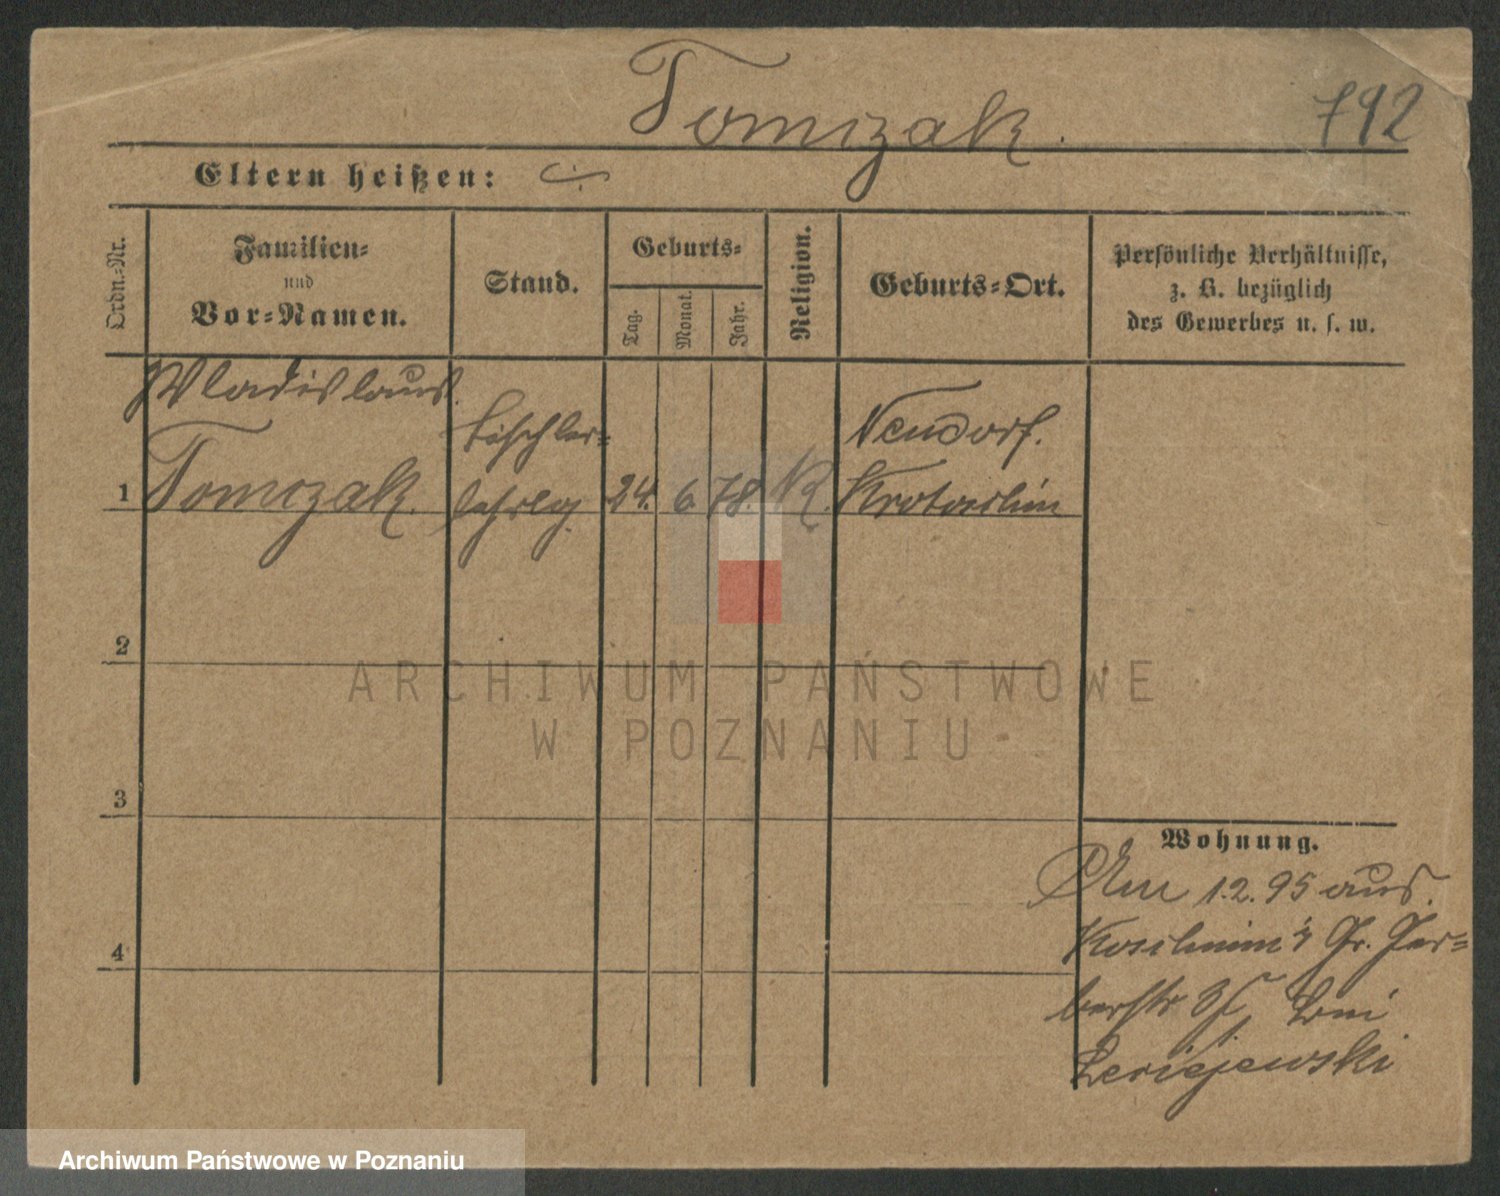 Tomczak.
792
Eltern heißen:
Ordn.-Nr.
Familien-
und
Vor-Namen.
Stand.
Geburts-
Tag.
Monat.
Jahr.
Religion.
Geburts-Ort.
Persönliche Verhältnisse,
z. B. bezüglich
des Gewerbes u. s. w.
1
Wladislaus
Tomczak.
Tischler-
lehrlg.
24.
6
78.
K.
Neudorf.
Krotoschin
2
3
4
Wohnung.
Am 1.2.95 aus
Koschmin Gr. Ger-
berstr. bei
ARCHIWUM PAŃSTWOWE
W POZNANIU
Archiwum Państwowe w Poznaniu